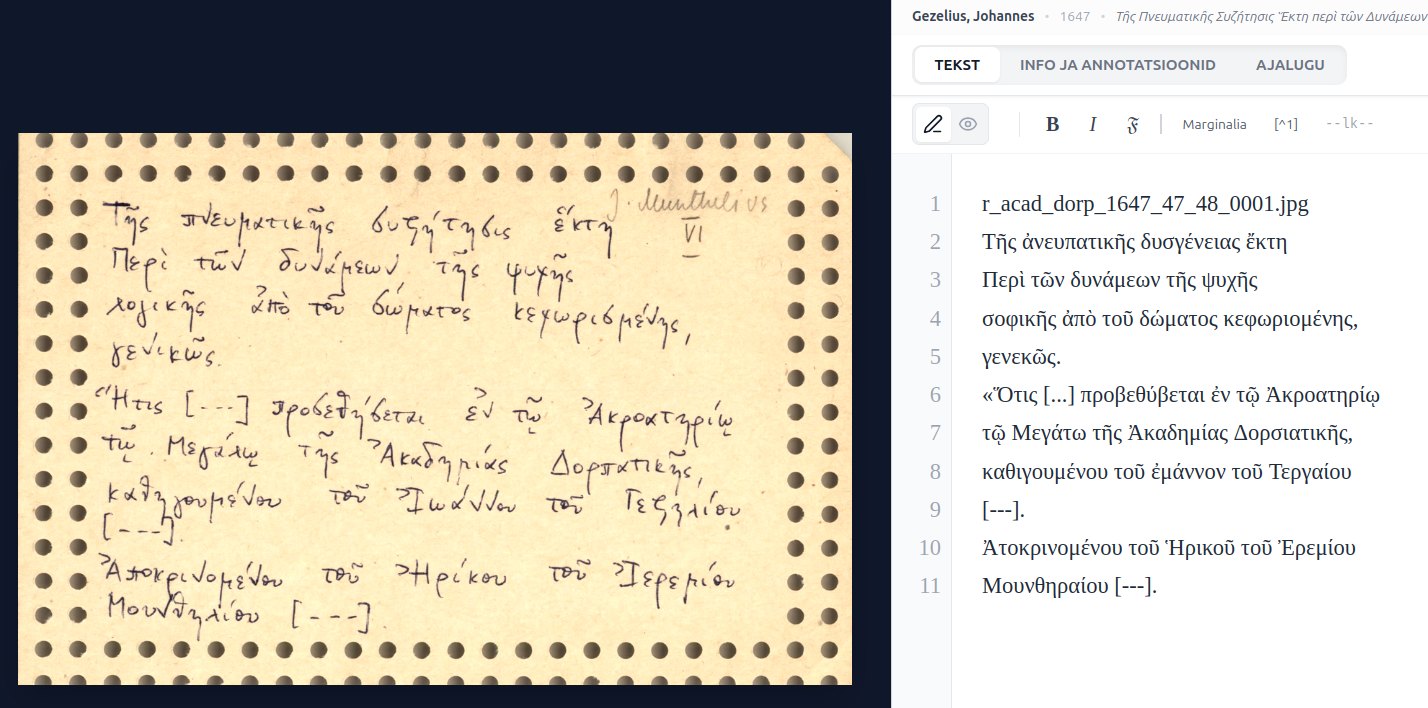 Gezelius, Johannes • 1647 • Τῆς Πνευματικῆς Συζήτησις Ἕκτη περὶ τῶν Δυνάμεων
TEKST INFO JA ANNOTATSIOONID AJALUGU
B I 𝔉 Marginalia [^1] --lk--
J. Munthelius
Τῆς πνευματικῆς συζήτησις ἕκτη VI
Περὶ τῶν δυνάμεων τῆς ψυχῆς
λογικῆς ἀπὸ τοῦ σώματος κεχωρισμένης,
γενικῶς.
Ἥτις [---] προσεθήσεται ἐν τῷ Ἀκροατηρίῳ
τῷ Μεγάλῳ τῆς Ἀκαδημίας Δορπατικῆς,
καθηγουμένου τοῦ Ἰωάννου τοῦ Γεζηλίου
[---].
Ἀποκρινομένου τοῦ Ἠρίκου τοῦ Ἰερεμίου
Μουνθηλίου [---].
1 r_acad_dorp_1647_47_48_0001.jpg
2 Τῆς ἀνευπατικῆς δυσγένειας ἕκτη
3 Περὶ τῶν δυνάμεων τῆς ψυχῆς
4 σοφικῆς ἀπὸ τοῦ δώματος κεφωριομένης,
5 γενεκῶς.
6 «Ὅτις [...] προβεθύβεται ἐν τῷ Ἀκροατηρίῳ
7 τῷ Μεγάτω τῆς Ἀκαδημίας Δορσιατικῆς,
8 καθιγουμένου τοῦ ἐμάννον τοῦ Τεργαίου
9 [---].
10 Ἀτοκρινομένου τοῦ Ἡρικοῦ τοῦ Ἐρεμίου
11 Μουνθηραίου [---].